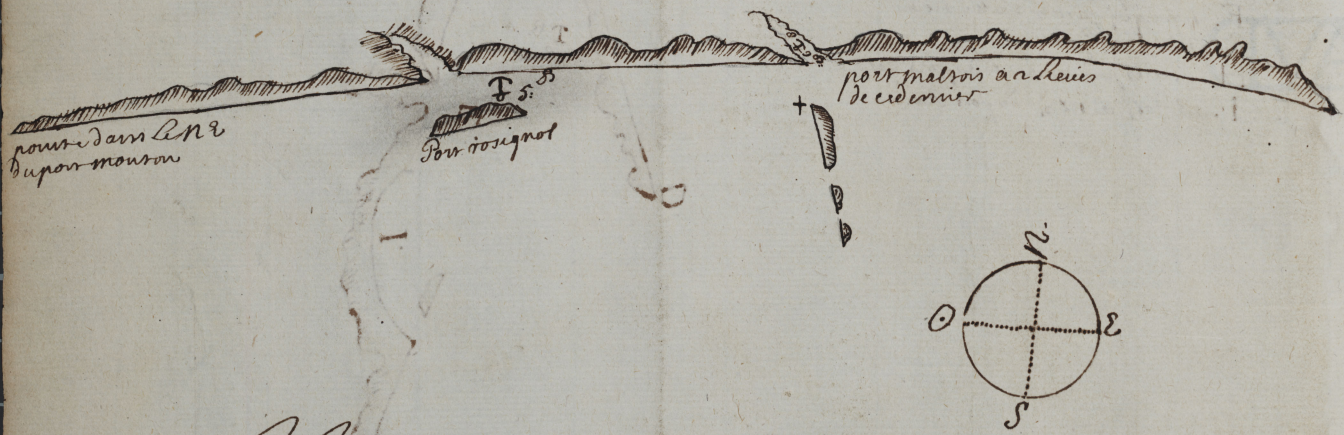 pointe dans Le NE
du port mouton
8
5:
Port rosignol
port maltois a 2 Lieües
de ce dernier
N
O
E
S